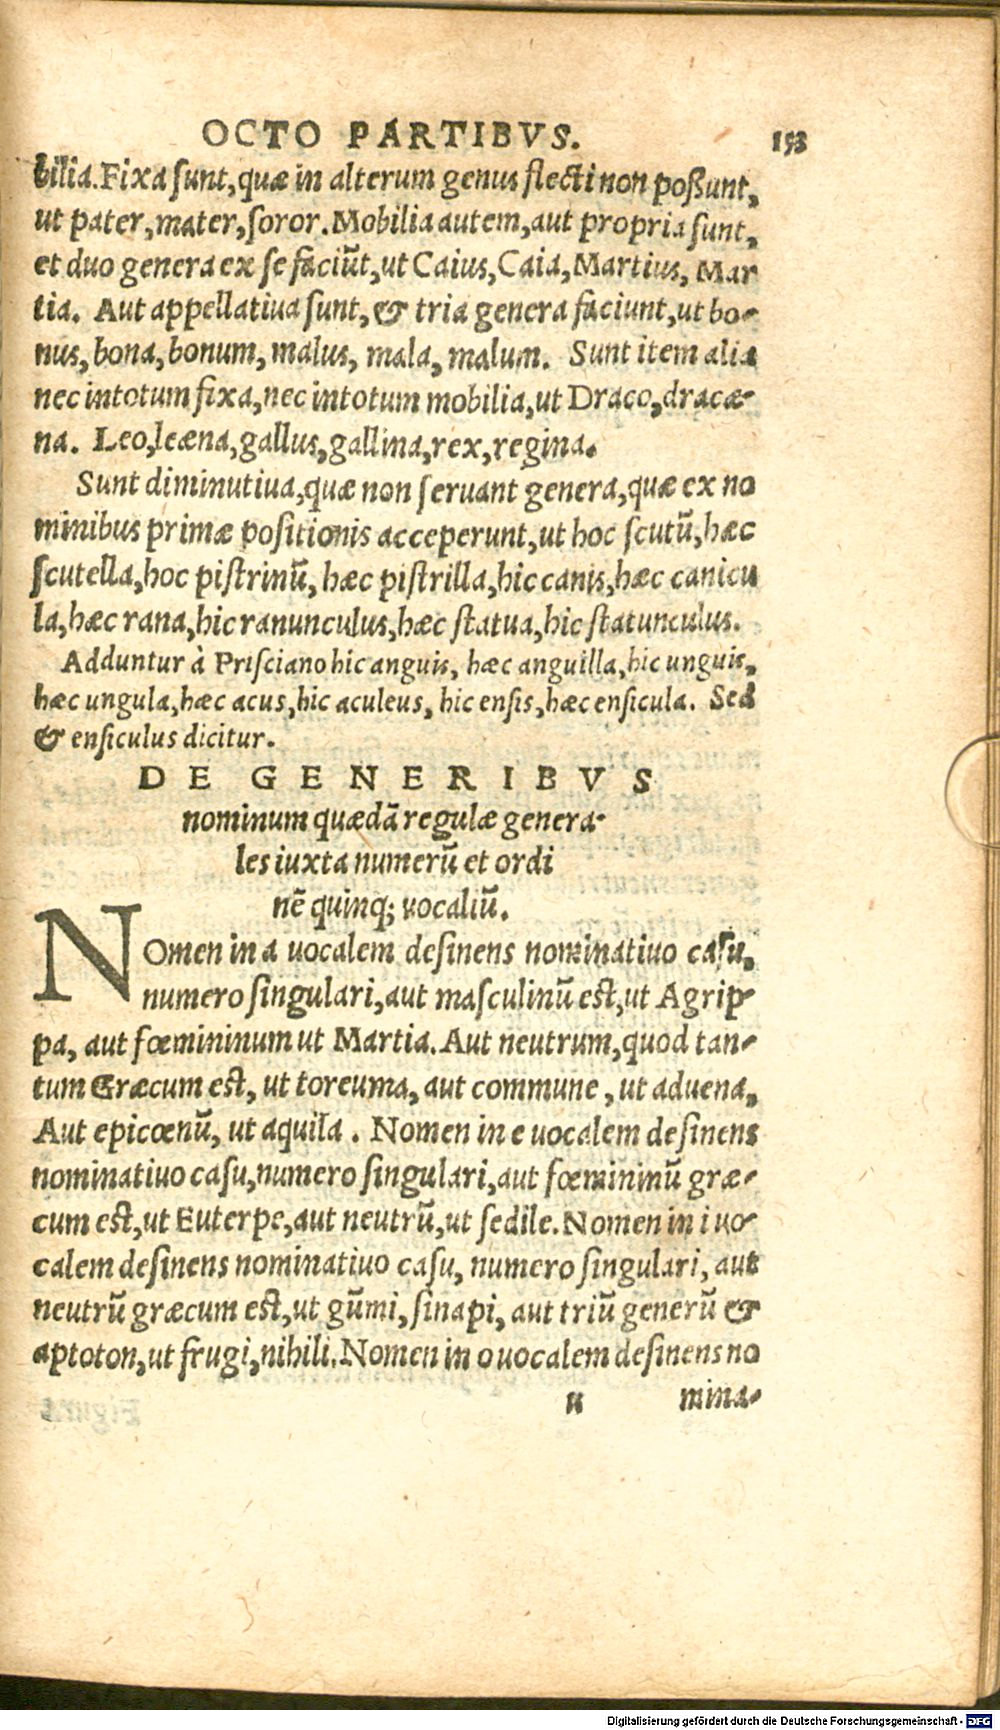 OCTO PARTIBVS. 153
bilia. Fixa ſunt, quæ in alterum genus flecti non poſſunt,
ut pater, mater, ſoror. Mobilia autem, aut propria ſunt,
et duo genera ex ſe faciūt, ut Caius, Caia, Martius, Mar
tia. Aut appellatiua ſunt, & tria genera faciunt, ut bo-
nus, bona, bonum, malus, mala, malum. Sunt item alia
nec intotum fixa, nec intotum mobilia, ut Draco, dracæ-
na. Leo, leæna, gallus, gallina, rex, regina.
Sunt diminutiua, quæ non ſeruant genera, quæ ex no
minibus primæ poſitionis acceperunt, ut hoc ſcutū, hæc
ſcutella, hoc piſtrinū, hæc piſtrilla, hic canis, hæc canicu
la, hæc rana, hic ranunculus, hæc ſtatua, hic ſtatunculus.
Adduntur à Priſciano hic anguis, hæc anguilla, hic unguis,
hæc ungula, hæc acus, hic aculeus, hic enſis, hæc enſicula. Sed
& enſiculus dicitur.
DE GENERIBVS
nominum quædā regulæ genera-
les iuxta numerū et ordi
nē quinq; uocaliū.
NOmen in a uocalem deſinens nominatiuo caſu,
numero ſingulari, aut maſculinū eſt, ut Agrip-
pa, aut fœmininum ut Martia. Aut neutrum, quod tan-
tum Græcum eſt, ut toreuma, aut commune, ut aduena,
Aut epicœnū, ut aquila. Nomen in e uocalem deſinens
nominatiuo caſu, numero ſingulari, aut fœmininū græ-
cum eſt, ut Euterpe, aut neutrū, ut ſedile. Nomen in i uo-
calem deſinens nominatiuo caſu, numero ſingulari, aut
neutrū græcum eſt, ut gūmi, ſinapi, aut triū generū &
aptoton, ut frugi, nihili. Nomen in o uocalem deſinens no
u mina-
Digitalisierung gefördert durch die Deutsche Forschungsgemeinschaft - DFG